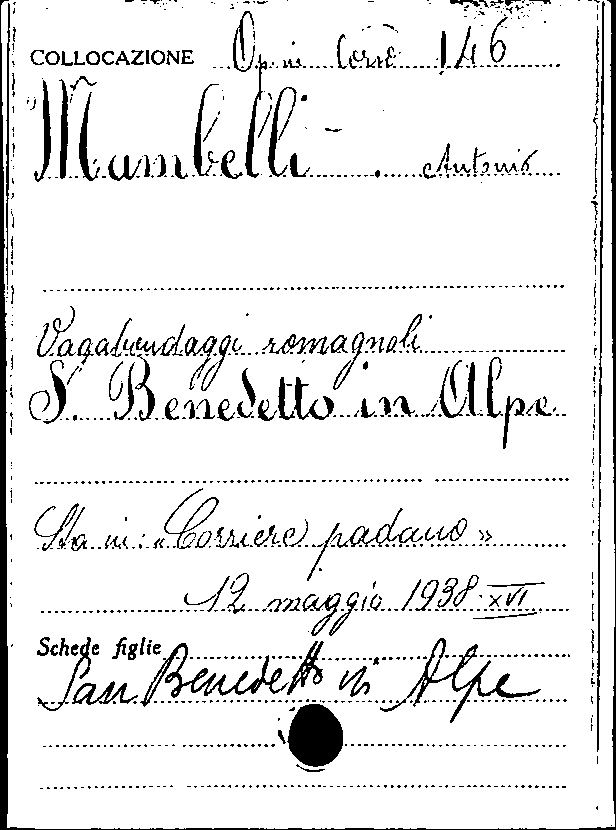 COLLOCAZIONE Op. in Corso 146
Mambelli - . Antonio
Vagabondaggi romagnoli
S. Benedetto in Alpe
Sta in: « Corriere padano »
12 maggio 1938. XVI
Schede figlie
San Benedetto in Alpe